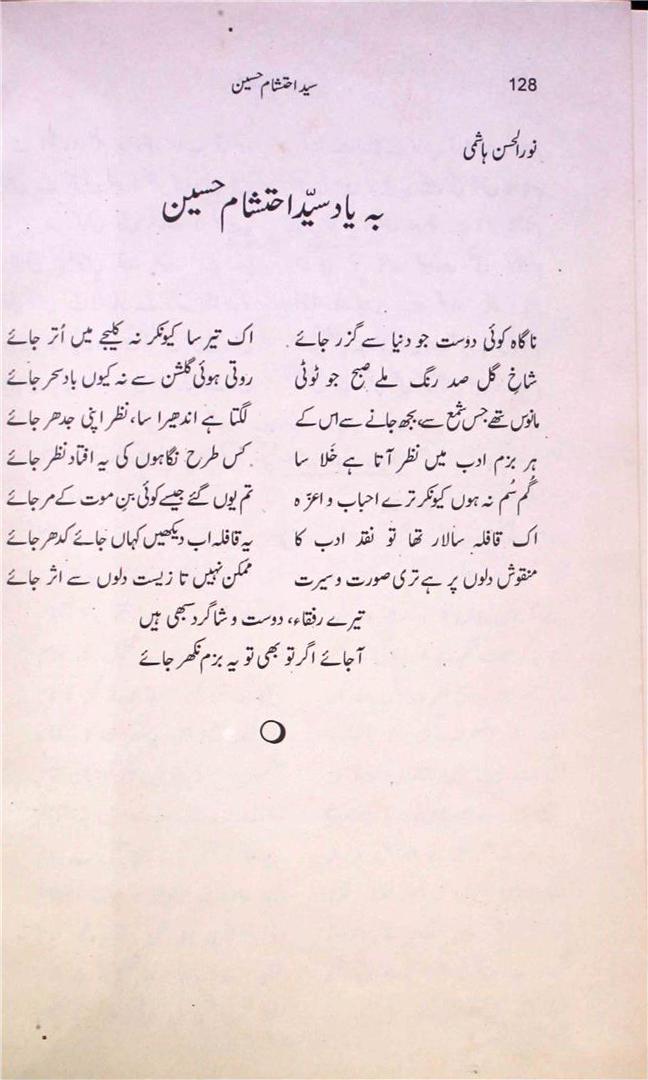 128 سید احتشام حسین
نور الحسن ہاشمی
بہ یاد سیّد احتشام حسین
ناگاہ کوئی دوست جو دنیا سے گزر جائے اک تیر سا کیونکر نہ کلیجے میں اُتر جائے
شاخِ گل صد رنگ ملے صبح جو ٹوٹی روتی ہوئی گلشن سے نہ کیوں بادِ سحر جائے
مانوس تھے جس شمع سے، بجھ جانے سے اس کے لگتا ہے اندھیرا سا، نظر اپنی جدھر جائے
ہر بزم ادب میں نظر آتا ہے خَلا سا کس طرح نگاہوں کی یہ افتاد نظر جائے
گُم سُم نہ ہوں کیونکر ترے احباب و اعزّہ تم یوں گئے جیسے کوئی بنِ موت کے مر جائے
اک قافلہ سالار تھا تو نقد ادب کا یہ قافلہ اب دیکھیں کہاں جائے کدھر جائے
منقوش دلوں پر ہے تری صورت و سیرت ممکن نہیں تا زیست دلوں سے اثر جائے
تیرے رفقاء، دوست و شاگرد سبھی ہیں
آ جائے اگر تو بھی تو یہ بزم نکھر جائے